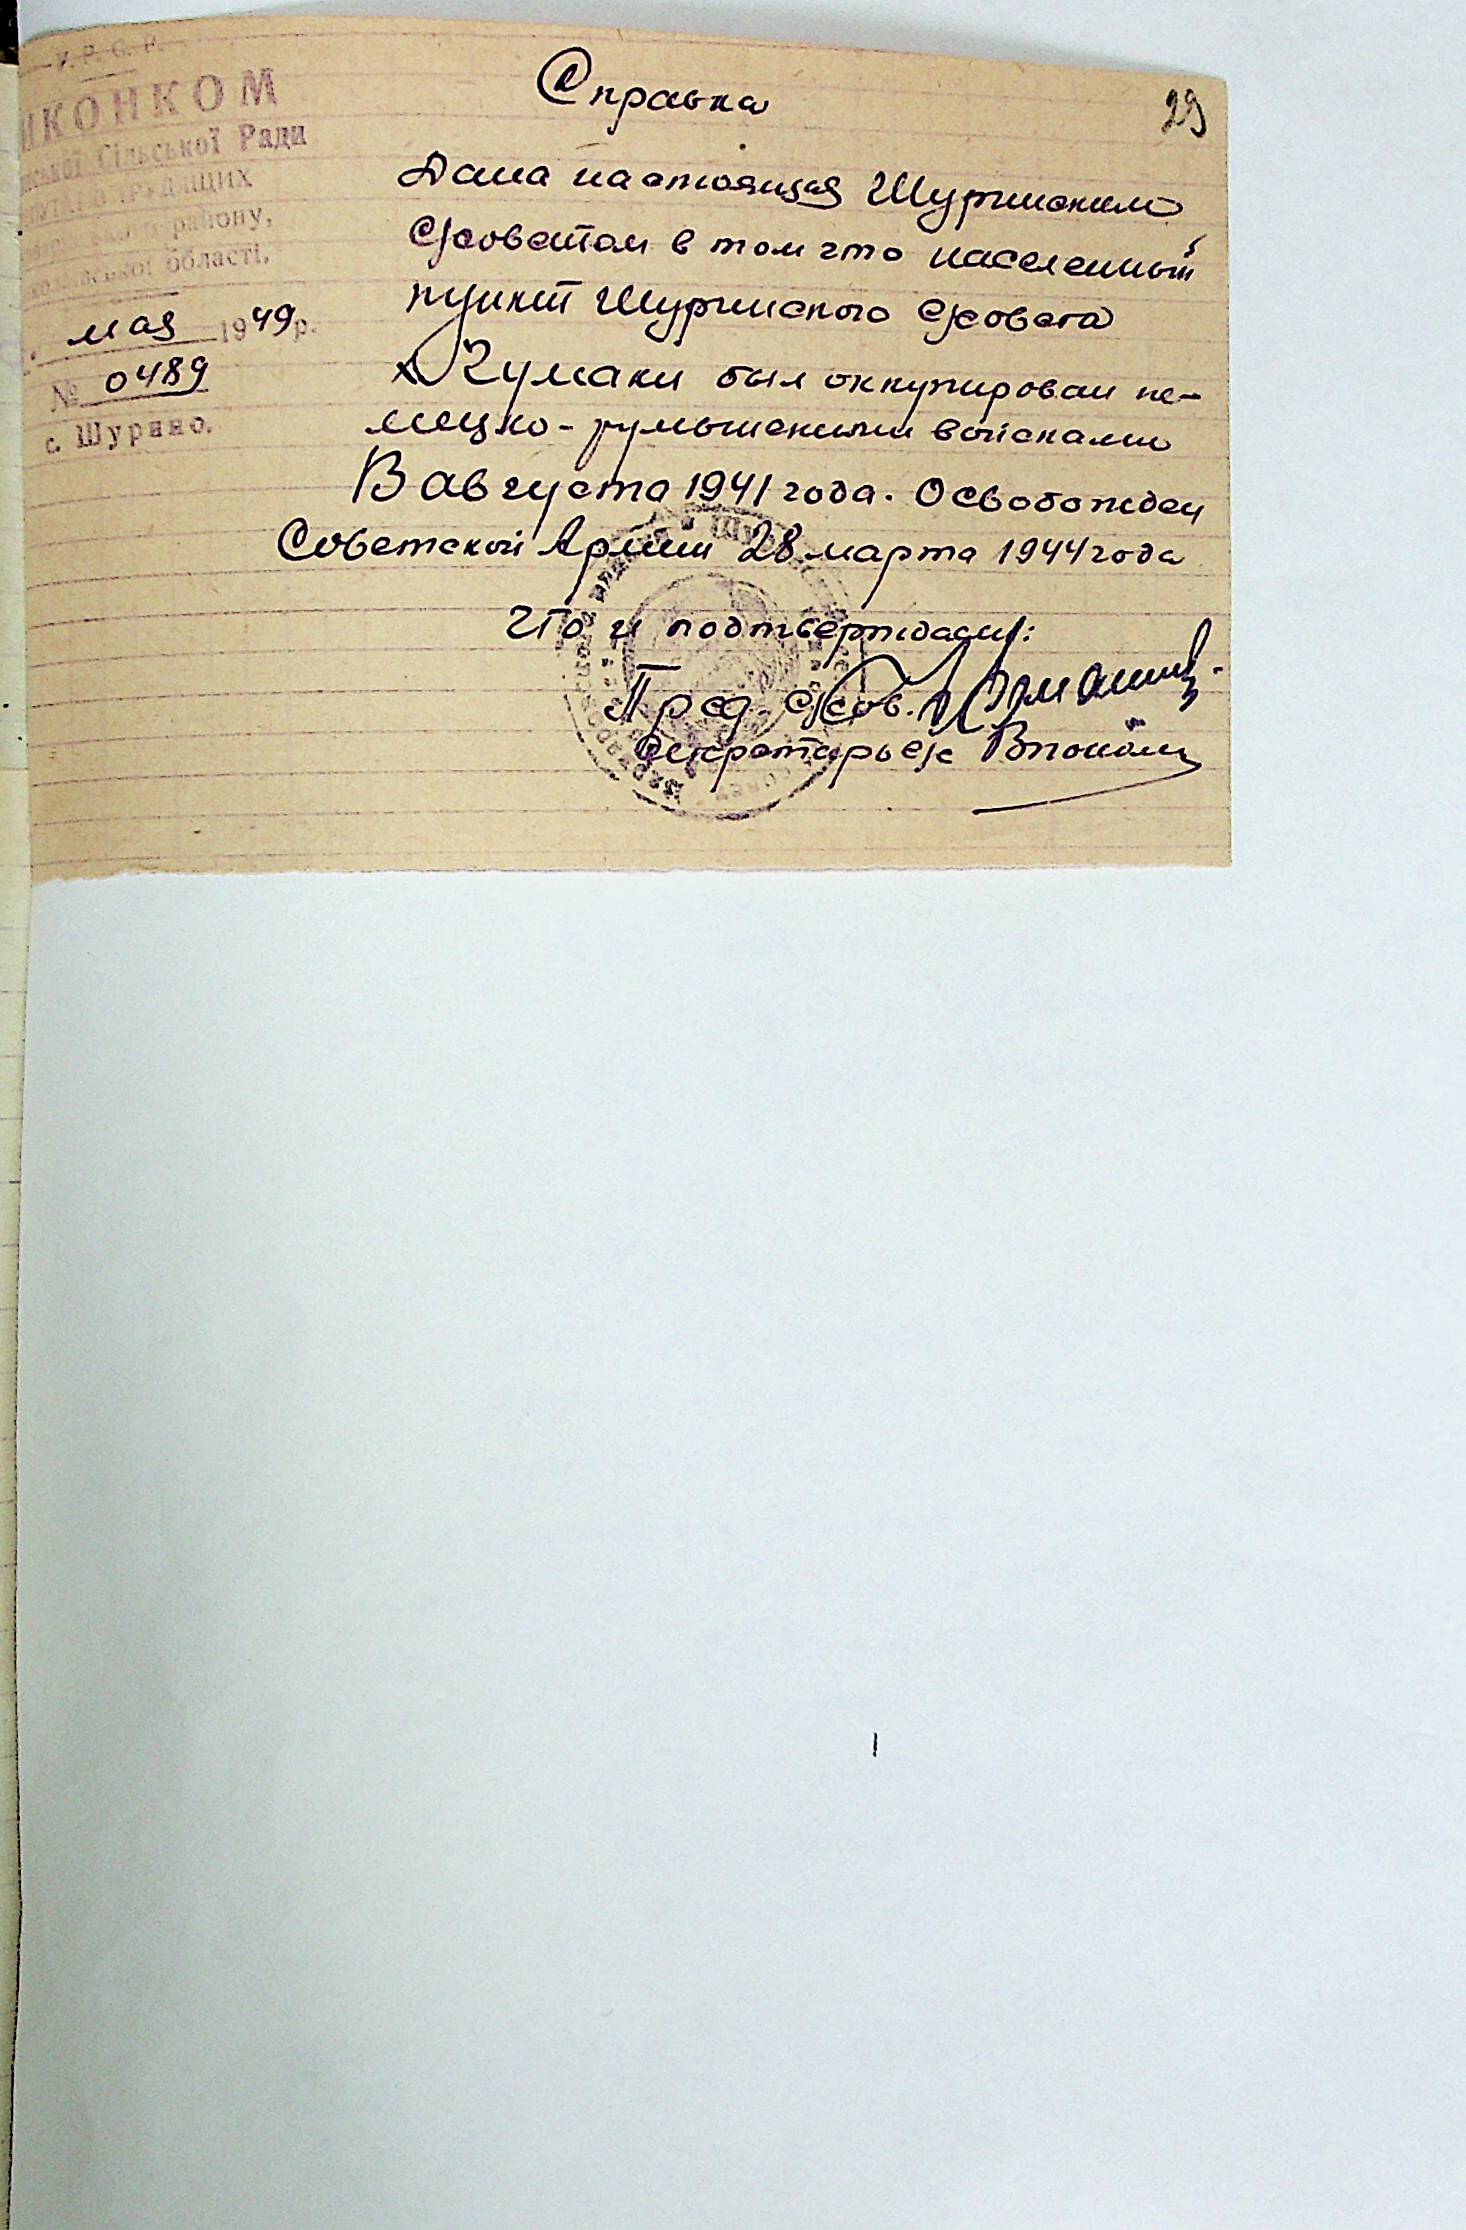 У. Р. С. Р.
ИКОНКОМ
Сільської Ради
трудящих
району,
області.
мая 1949 р.
№ 0489
с. Шурино.
29
Справка
Дана настоящая Шуринским
с/советом в том что населенный
пункт Шуринского с/совета
х Чумаки был оккупирован не-
мецко-румынскими войсками
В августа 1941 года. Освобожден
Советской Армии 28 марта 1944 года
что и подтверждаем:
Пред. с/сов.
Секретарь с/с